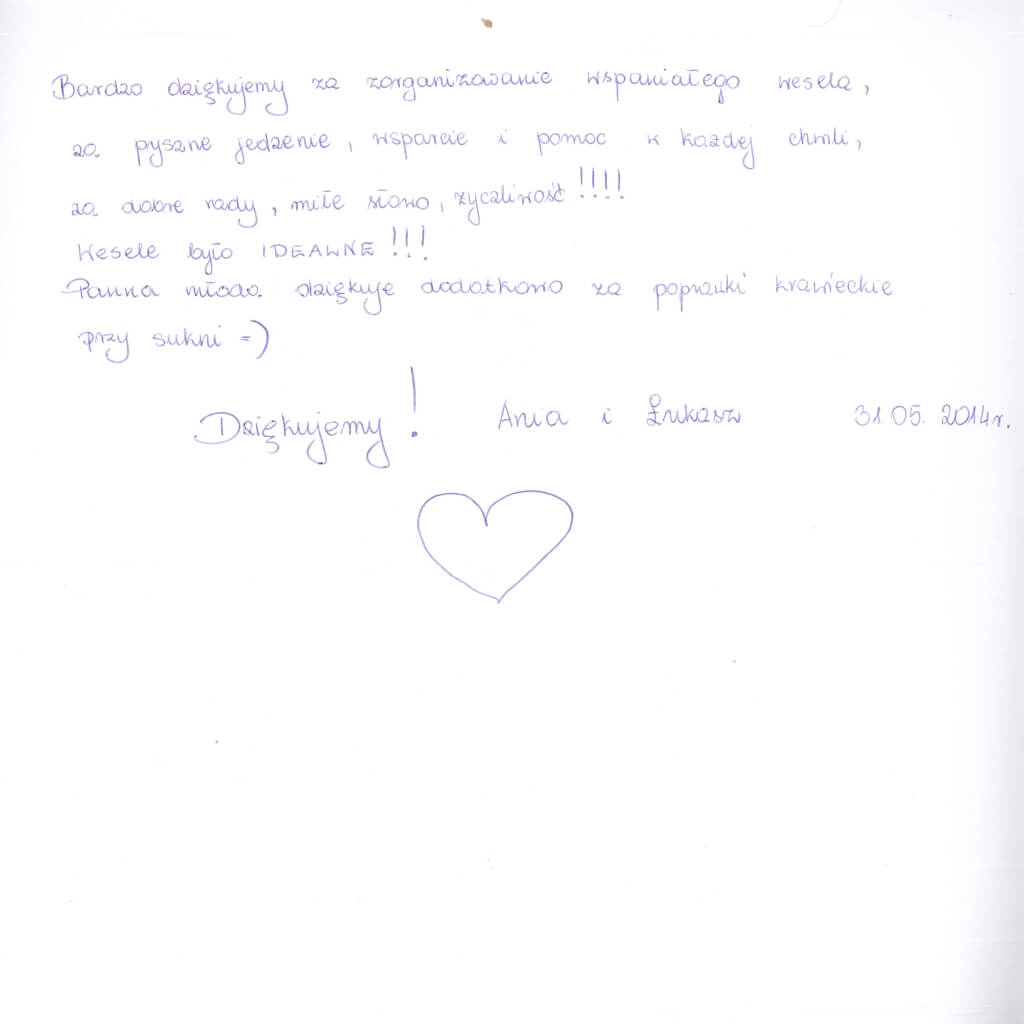 Bardzo dziękujemy za zorganizowanie wspaniałego wesela,
za pyszne jedzenie, wsparcie i pomoc w każdej chwili,
za dobre rady, miłe słowo, życzliwość !!!!
Wesele było IDEALNE !!!
Panna młoda dziękuje dodatkowo za poprawki krawieckie
przy sukni =)
Dziękujemy! Ania i Łukasz 31.05.2014r.